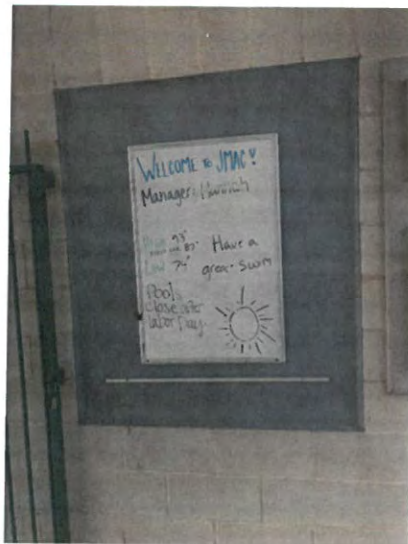 WELCOME to JMAC
Manager: Hannah
High 93°
87°
Low 74°
Have a
great swim
Pools
close after
Labor Day